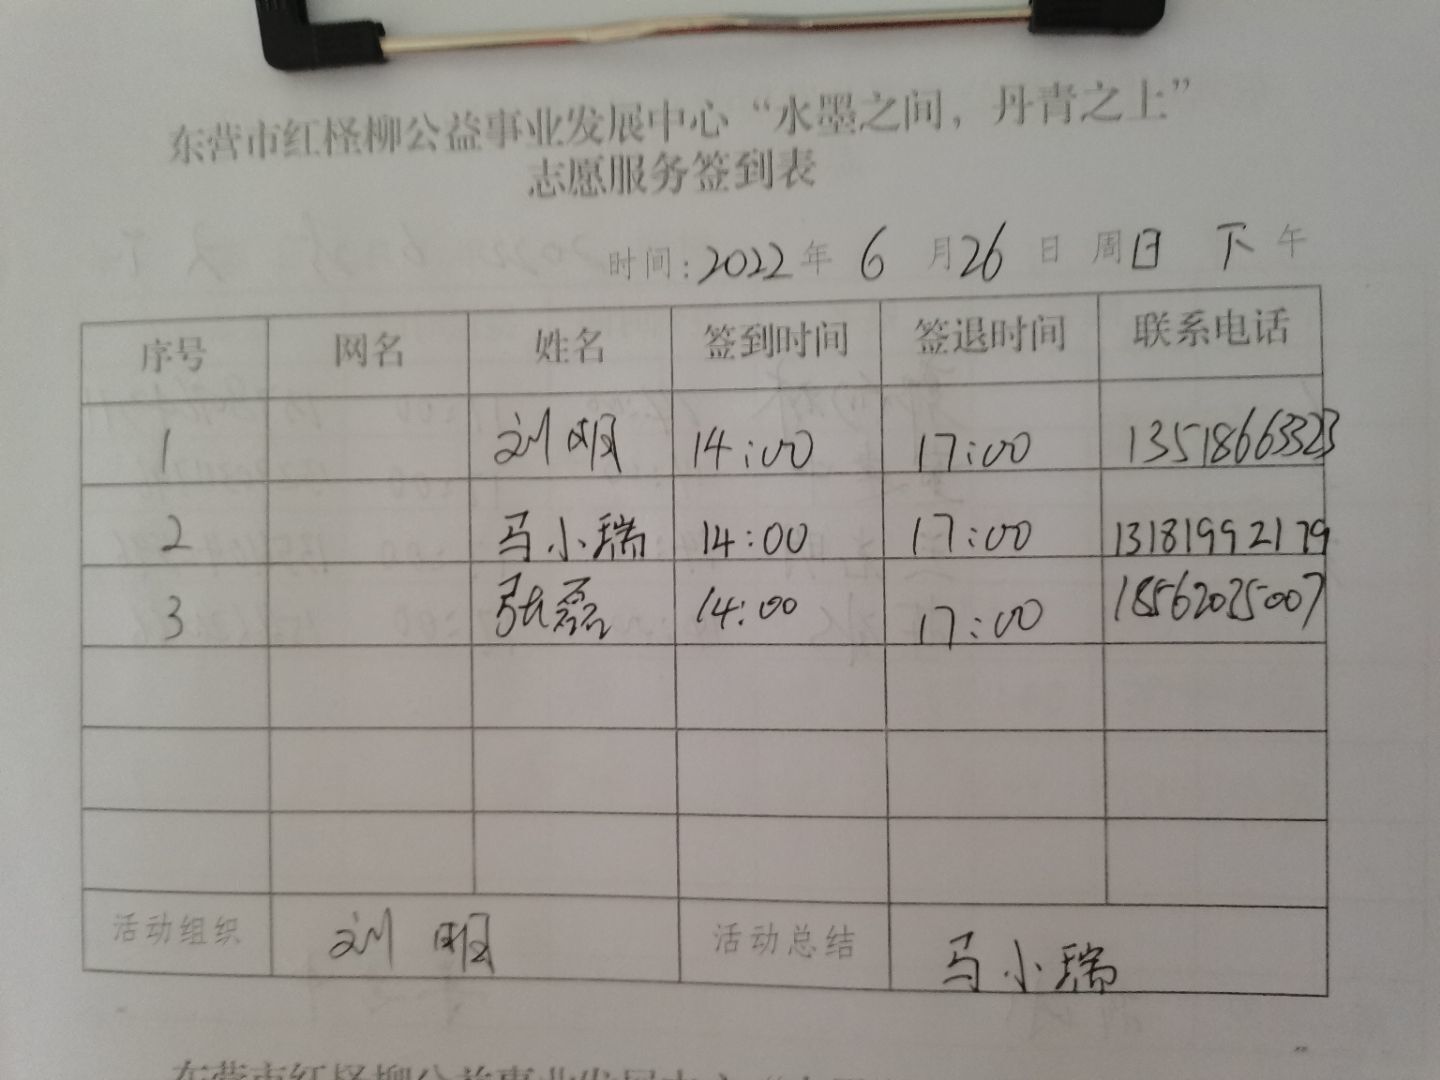 东营市红柽柳公益事业发展中心“水墨之间，丹青之上”
志愿服务签到表
时间：2022年 6 月26 日 周日 下午
序号 网名 姓名 签到时间 签退时间 联系电话
1 刘明 14:00 17:00 13518663323
2 马小瑞 14:00 17:00 13181992179
3 张磊 14:00 17:00 18562025007
活动组织 刘明 活动总结 马小瑞
东营市红柽柳公益事业发展中心“